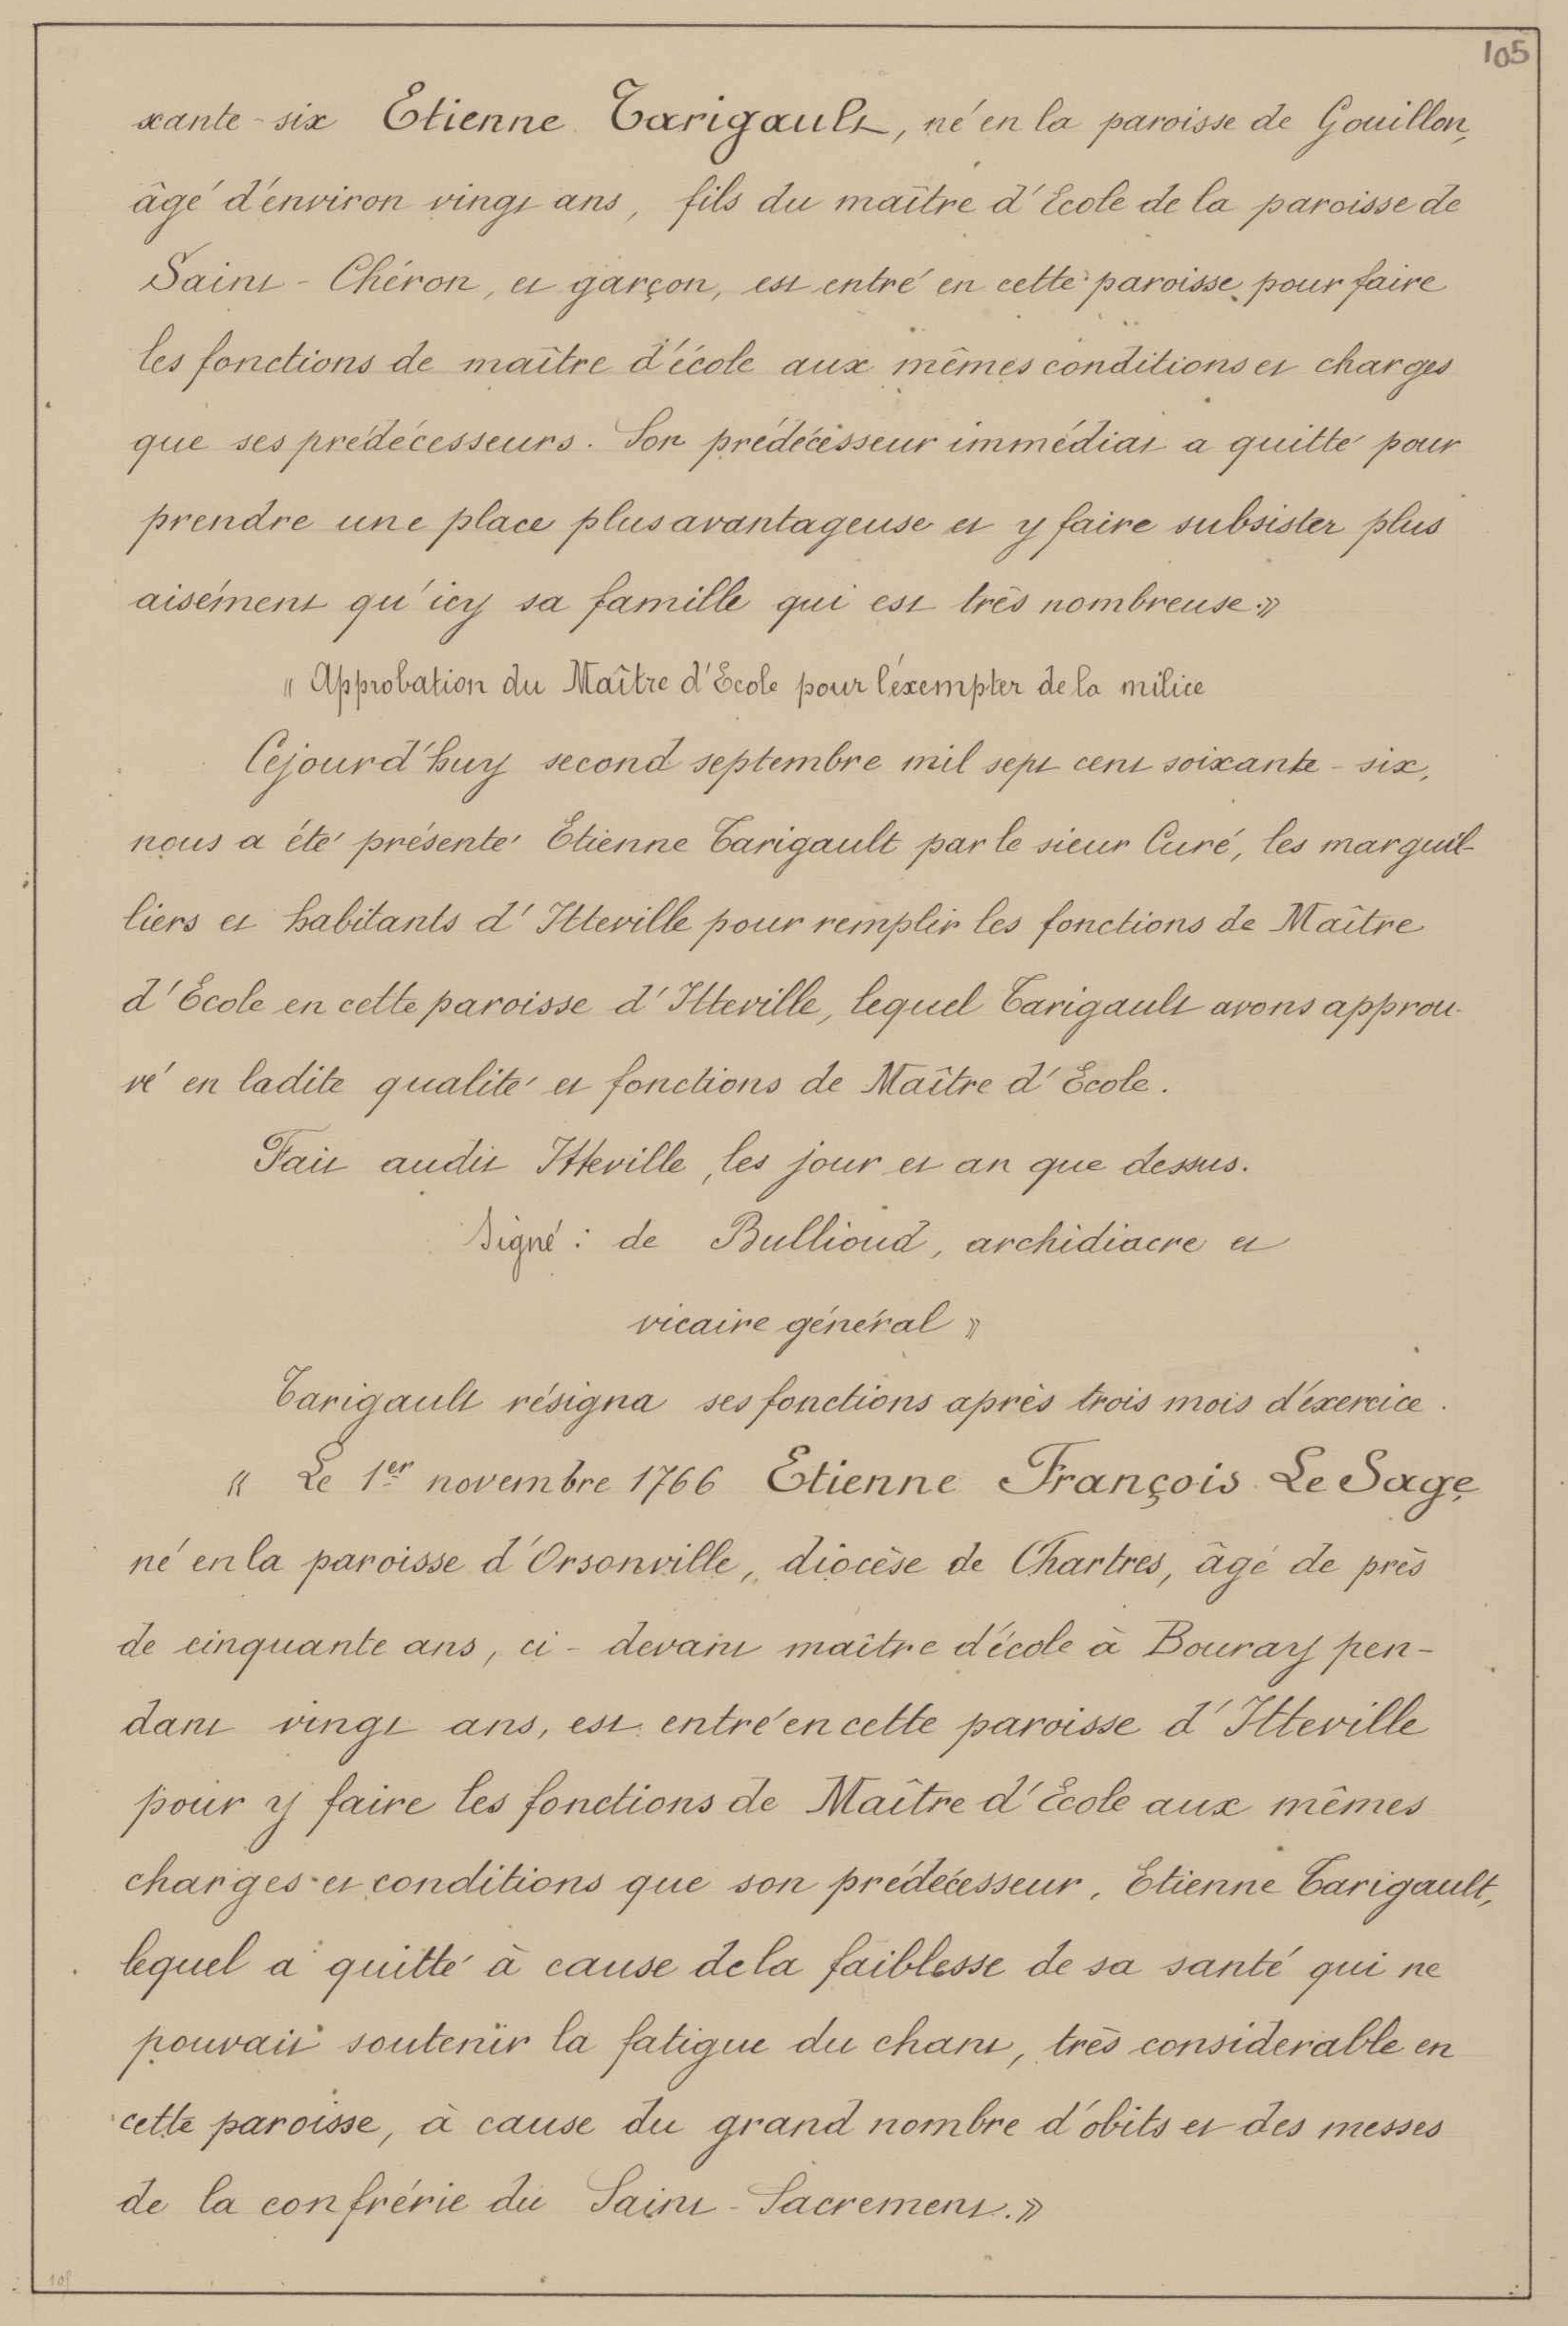 105
xante-six Etienne Tarigault, né en la paroisse de Gouillon,
âgé d'environ vingt ans, fils du maître d'Ecole de la paroisse de
Saint-Chéron, et garçon, est entré en cette paroisse pour faire
les fonctions de maître d'école aux mêmes conditions et charges
que ses prédécesseurs. Son prédécesseur immédiat a quitté pour
prendre une place plus avantageuse et y faire subsister plus
aisément qu'icy sa famille qui est très nombreuse.»
« Approbation du Maître d'Ecole pour l'exempter de la milice
Cejourd'huy second septembre mil sept cent soixante-six,
nous a été présenté Etienne Tarigault par le sieur Curé, les marguil-
liers et habitants d'Itteville pour remplir les fonctions de Maître
d'Ecole en cette paroisse d'Itteville, lequel Tarigault avons approu-
vé en ladite qualité et fonctions de Maître d'Ecole.
Fait audit Itteville, les jour et an que dessus.
Signé : de Bullioud, archidiacre et
vicaire général »
Tarigault résigna ses fonctions après trois mois d'exercice.
« Le 1er novembre 1766 Etienne François Le Sage,
né en la paroisse d'Orsonville, diocèse de Chartres, âgé de près
de cinquante ans, ci-devant maître d'école à Bouray pen-
dant vingt ans, est entré en cette paroisse d'Itteville
pour y faire les fonctions de Maître d'Ecole aux mêmes
charges et conditions que son prédécesseur, Etienne Tarigault,
lequel a quitté à cause de la faiblesse de sa santé qui ne
pouvait soutenir la fatigue du chant, très considerable en
cette paroisse, à cause du grand nombre d'obits et des messes
de la confrérie du Saint-Sacrement.»